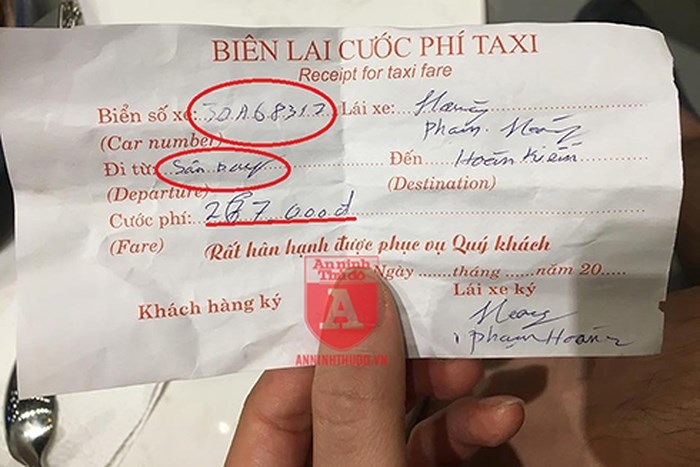 BIÊN LAI CƯỚC PHÍ TAXI
Receipt for taxi fare
Biển số xe: 30A68312 Lái xe: Hoàng
(Car number) Phạm Hoàng
Đi từ: Sân bay Đến Hoàn Kiếm
(Departure) (Destination)
Cước phí: 287 000đ
(Fare) Rất hân hạnh được phục vụ Quý khách
Ngày ....... tháng ...... năm 20.....
Khách hàng ký Lái xe ký
An ninh Thủ đô
A
ANNINHTHUDO.VN
Phạm Hoàng